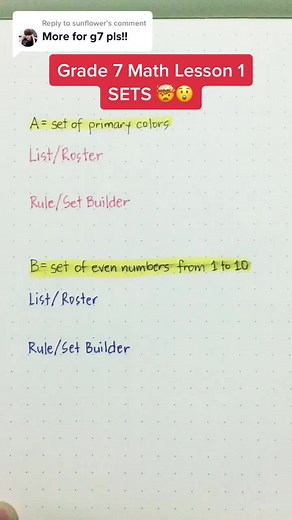 Reply to sunflower's comment
More for g7 pls!!
Grade 7 Math Lesson 1
SETS 🤯😲
A = set of primary colors
List/Roster
Rule/Set Builder
B = set of even numbers from 1 to 10
List/Roster
Rule/Set Builder